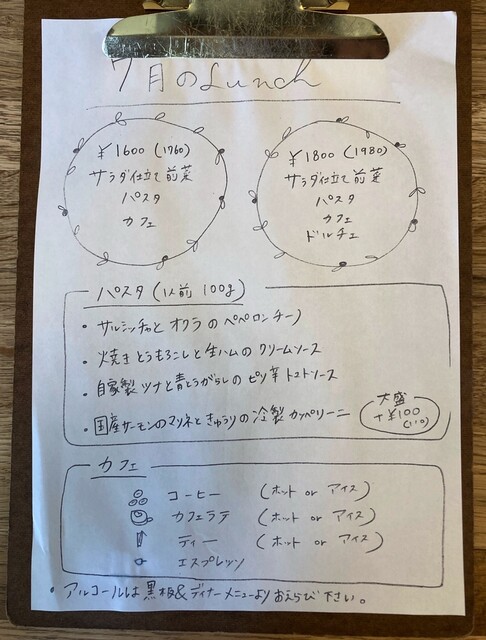 7月のLunch
¥1600 (1760)
サラダ仕立て前菜
パスタ
カフェ
¥1800 (1980)
サラダ仕立て前菜
パスタ
カフェ
ドルチェ
パスタ (1人前 100g)
・サルシッチャと オクラの ペペロンチーノ
・焼きとうもろこしと生ハムの クリームソース
・自家製ツナと青とうがらしの ピリ辛 トマトソース
・国産サーモンのマリネと きゅうりの 冷製 カッペリーニ
大盛
+¥100
(110)
カフェ
コーヒー (ホット or アイス)
カフェラテ (ホット or アイス)
ティー (ホット or アイス)
エスプレッソ
・アルコールは 黒板&ディナーメニューより おえらび下さい。